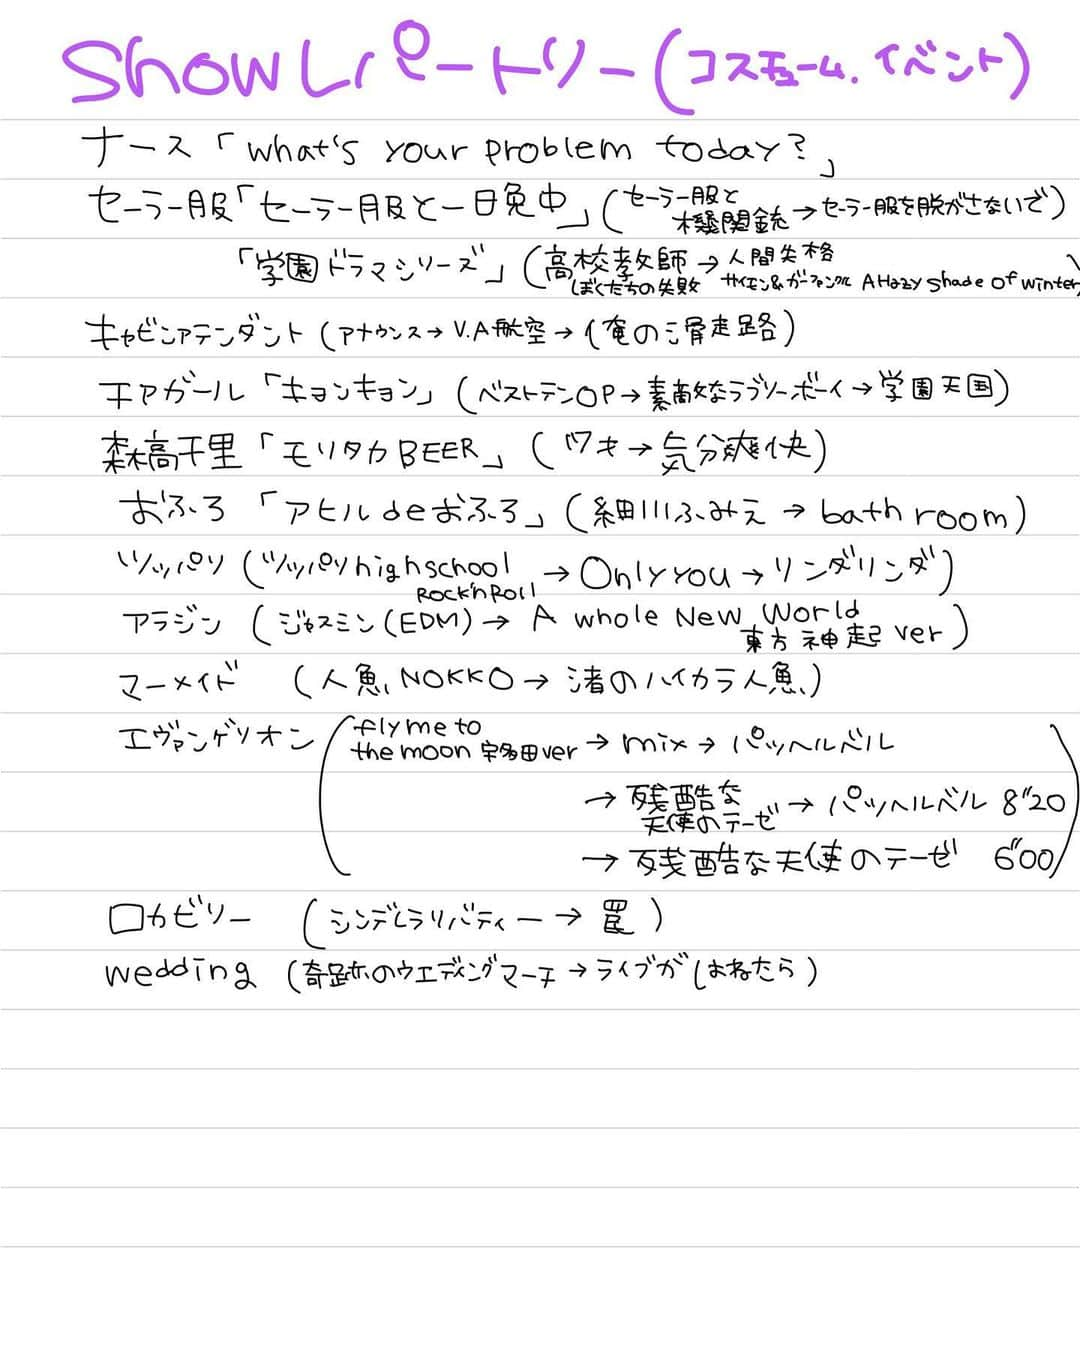 Showレパートリー(コスチューム.イベント)
ナース「what's your problem today?」
セーラー服「セーラー服と一日免中」(セーラー服と機関銃→セーラー服を脱がさないで)
「学園ドラマシリーズ」(高校教師 ぼくたちの失敗→人間失格 サイモン&ガーファンクル A Hazy Shade of winter)
キャビンアテンダント(アナウンス→V.A航空→(俺の滑走路)
エアガール「キョンキョン」(ベストテンOP→素敵なラブリーボーイ→学園天国)
森高千里「モリタカBEER」(ワキ→気分爽快)
おふろ「アヒルdeおふろ」(細川ふみえ→bath room)
ツッパリ(ツッパリhighschool ROCK'n Roll→Only you→リンダリンダ)
アラジン(ジャスミン(EDM)→A whole New World 東方神起ver)
マーメイド(人魚NOKKO→渚のハイカラ人魚)
エヴァンゲリオン(fly me to the moon 宇多田ver→mix→パッヘルベル
→残酷な天使のテーゼ→パッヘルベル 8"20
→残酷な天使のテーゼ 6"00)
ロカビリー(シンデレラリバティー→罠)
wedding(奇跡のウエディングマーチ→ライブがはねたら)